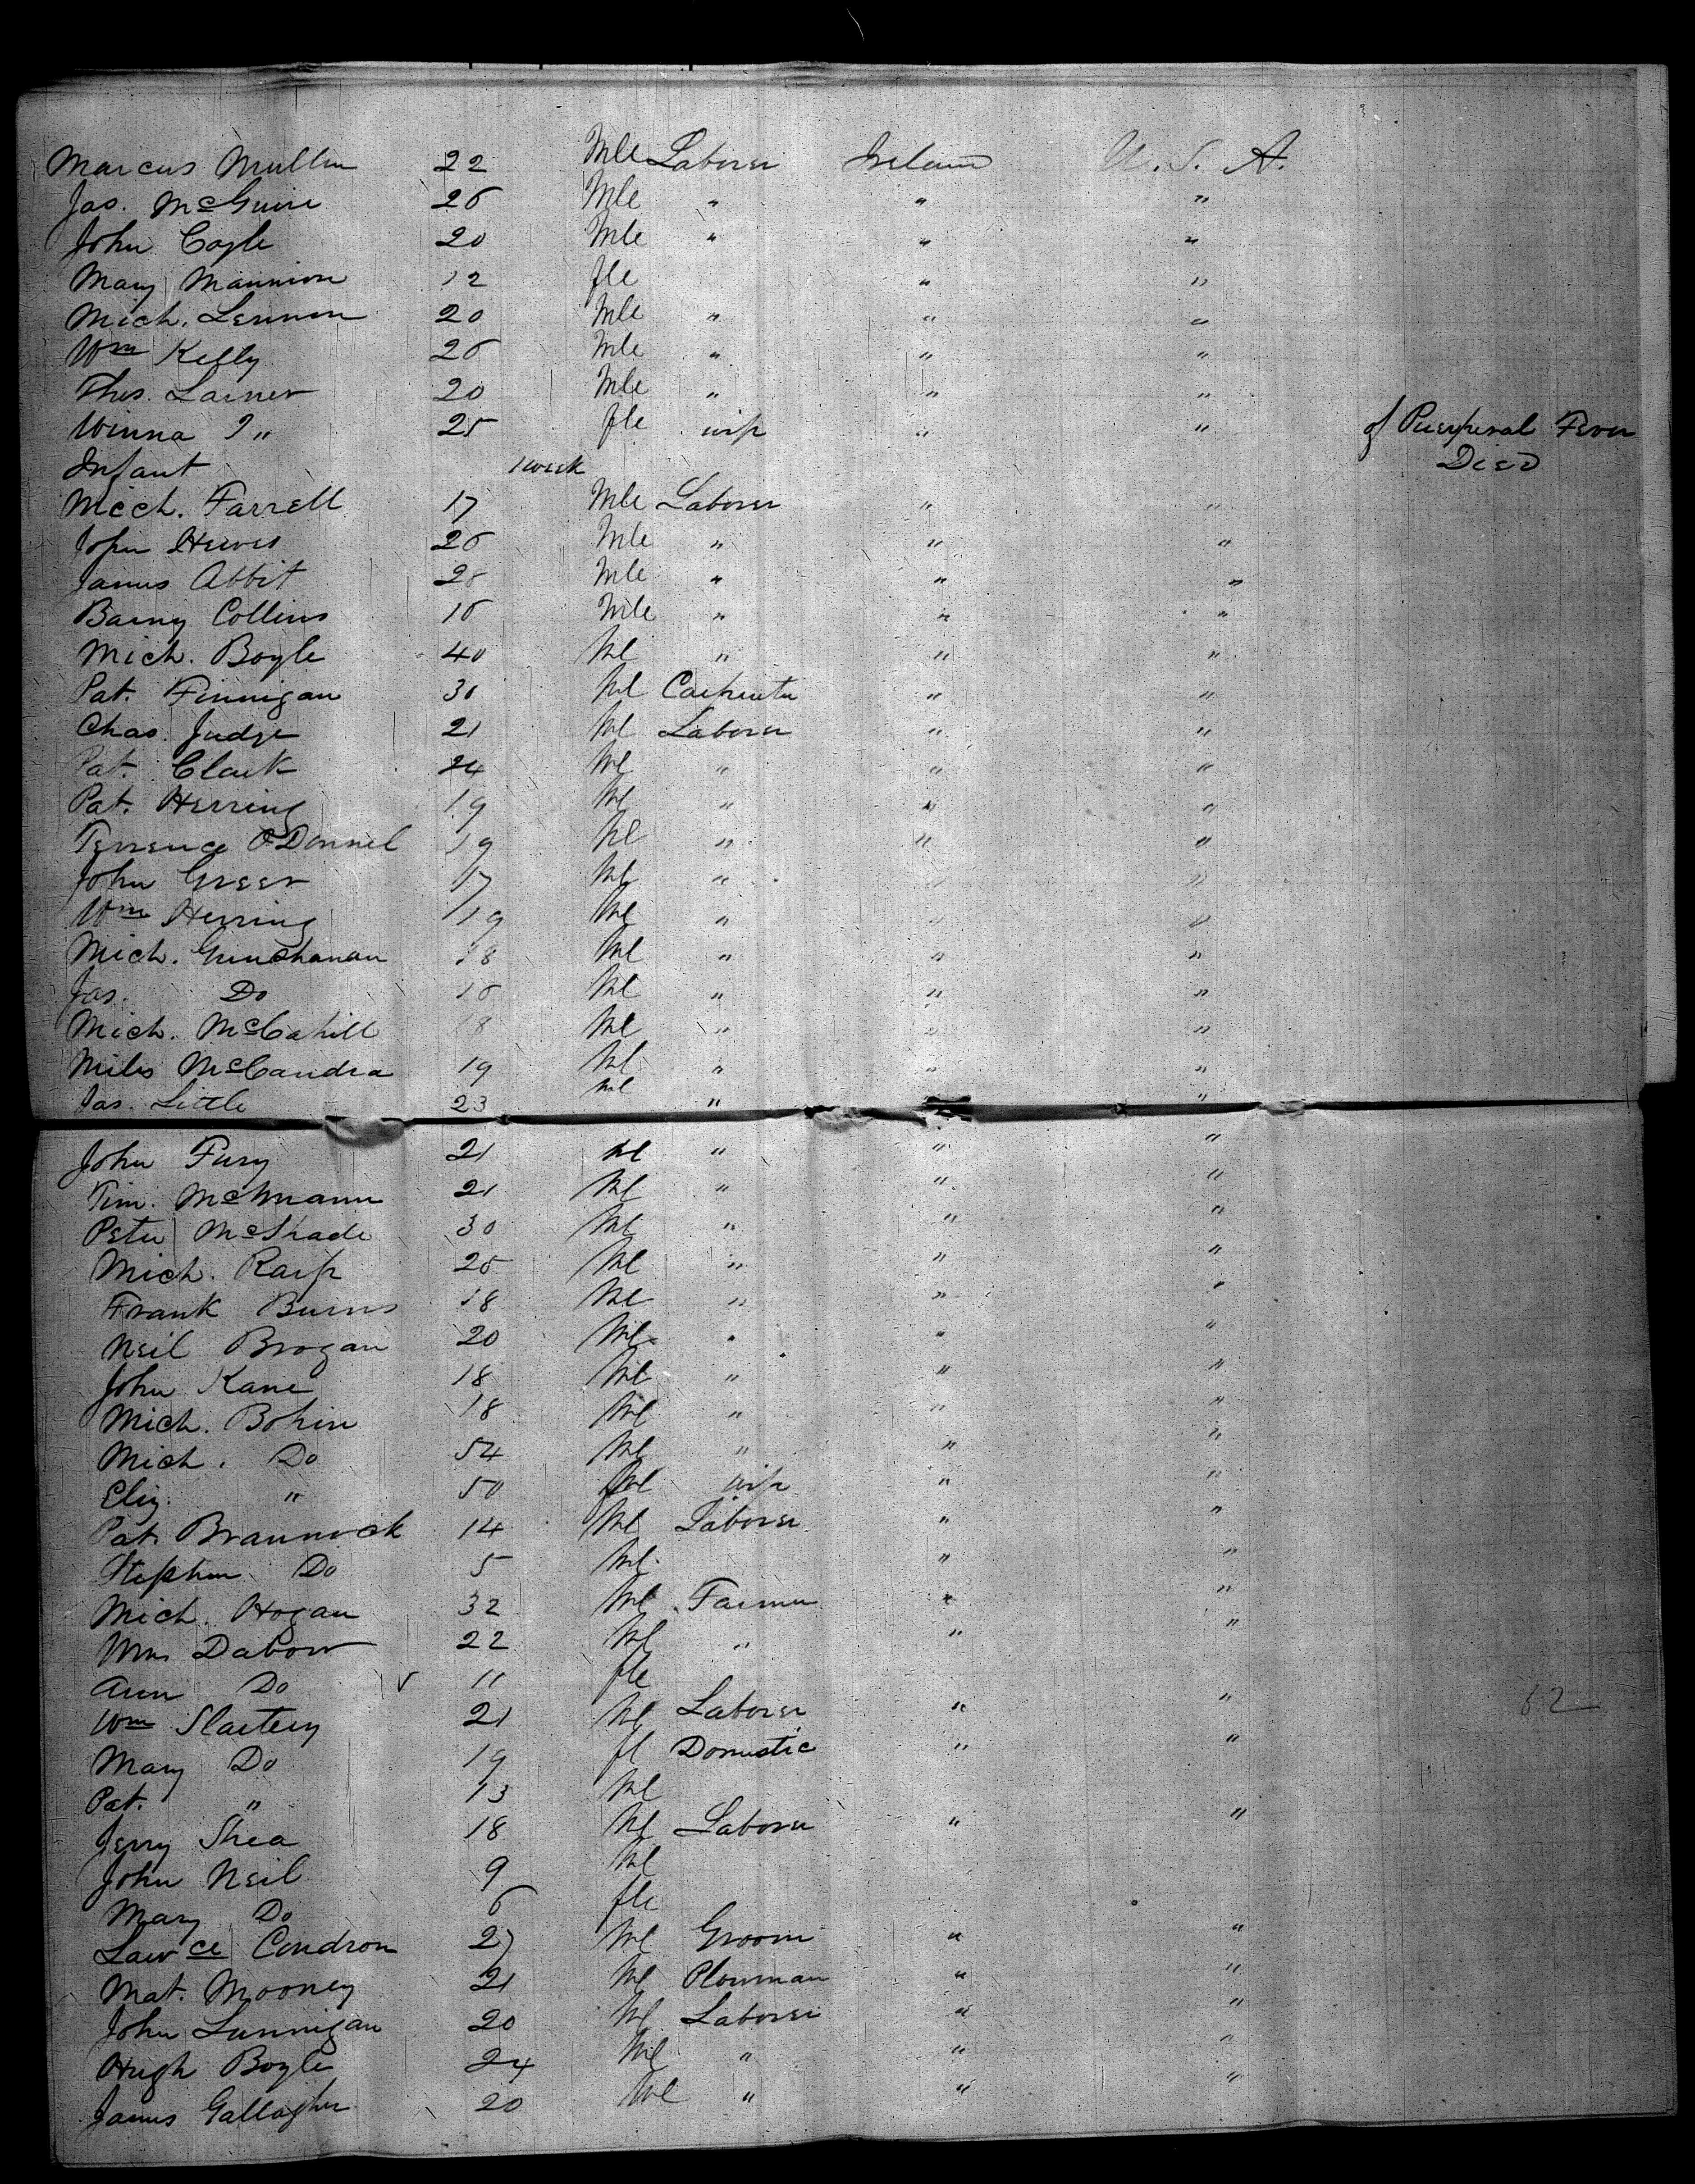 Marcus Mullin 22 Mle Laborer Ireland U. S. A.
Jas. McGuire 26 Mle " " "
John Coyle 20 Mle " " "
Mary Mannion 12 fle " "
Mich. Lennon 20 Mle " " "
Wm Kelly 26 Mle " " "
Thos. Larner 20 Mle " " "
Winna " 25 fle wife " " of Puerperal Fever
Infant 1 week Died
Mich. Farrell 17 Mle Laborer " "
John 26 Mle " " "
James Abbit 28 Mle " " "
Barny Collins 16 Mle " " "
Mich. Boyle 40 Ml " " "
Pat. Finnigan 30 Ml Carpenter " "
Chas. Judge 21 Ml Laborer " "
Pat. Clark 24 Ml " " "
Pat. Herring 19 Ml " " "
Terrence O'Donnel 19 Ml " " "
John Greer 17 Ml " " "
Wm Herring 19 Ml " " "
Mich. 18 Ml " " "
Jas. Do 16 Ml " " "
Mich. McCahill 18 Ml " " "
Miles McCandra 19 Ml " " "
Jas. Little 23 Ml " "
John Fury 21 Ml " " "
Tim. McMann 21 Ml " " "
Peter McShade 30 Ml " " "
Mich. 26 Ml " " "
Frank Burns 18 Ml " " "
Neil Brogan 20 Ml " " "
John Kane 18 Ml " " "
Mich. Bohin 18 Ml " " "
Mich. Do 54 Ml " " "
Eliz. " 50 fml wife " "
Pat. Brannock 14 Ml Laborer " "
Stephen Do 5 Ml " "
Mich. Hogan 32 Ml Farmer " "
Wm Dabow 22 Ml " " "
Ann Do 11 fle
Wm Slattery 21 Ml Laborer " " 62
Mary Do 19 fl Domestic " "
Pat. " 13 Ml
Jerry Shea 18 Ml Laborer " "
John Neil 9 Ml
Mary Do 6 fle
Lawce Condron 27 Ml Groom " "
Mat. Mooney 21 Ml Plowman " "
John Lunnigan 20 Ml Laborer " "
Hugh Boyle 24 Ml " " "
James Gallagher 20 Ml " " "